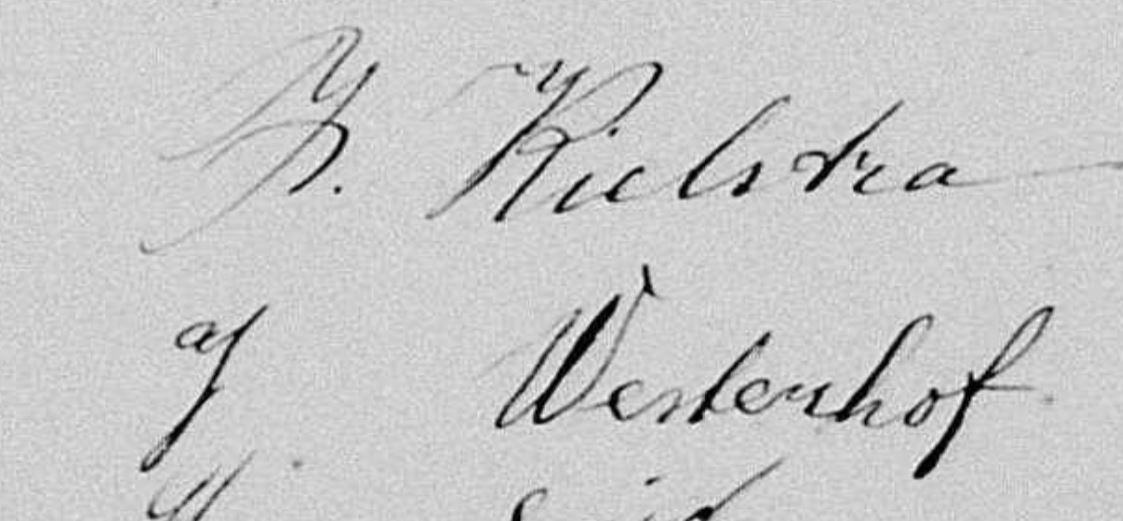 Y. Kielstra
aj Westerhof